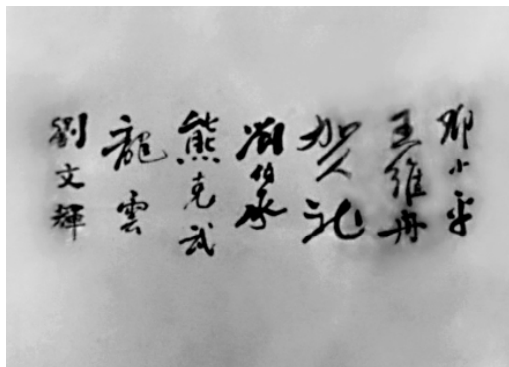 鄧小平
王維舟
賀龍
劉伯承
熊克武
龍雲
劉文輝